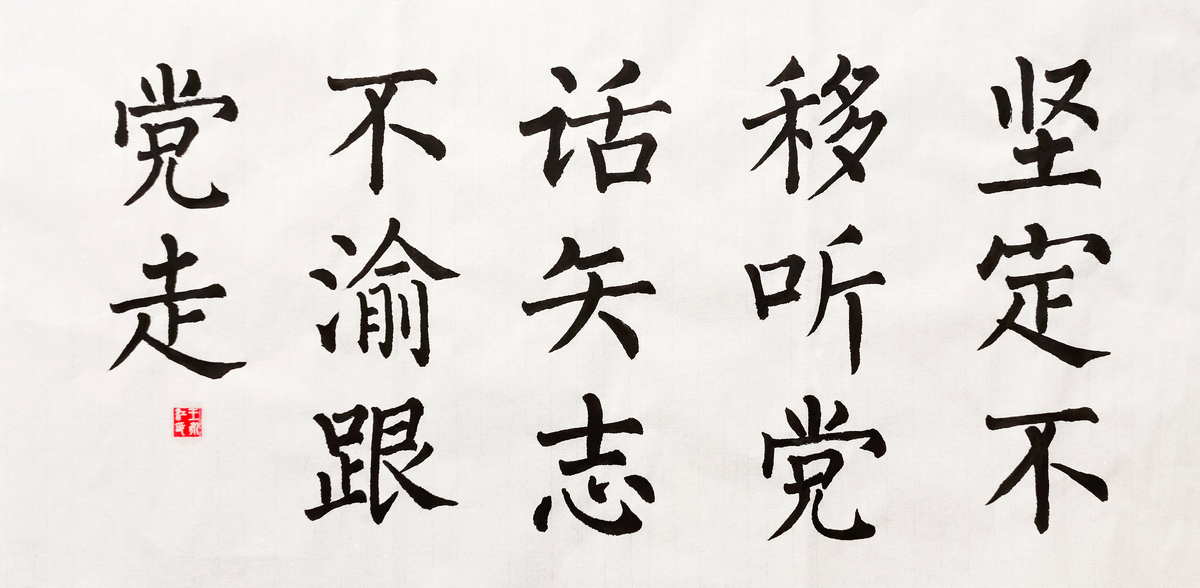 坚定不
移听党
话矢志
不渝跟
党走